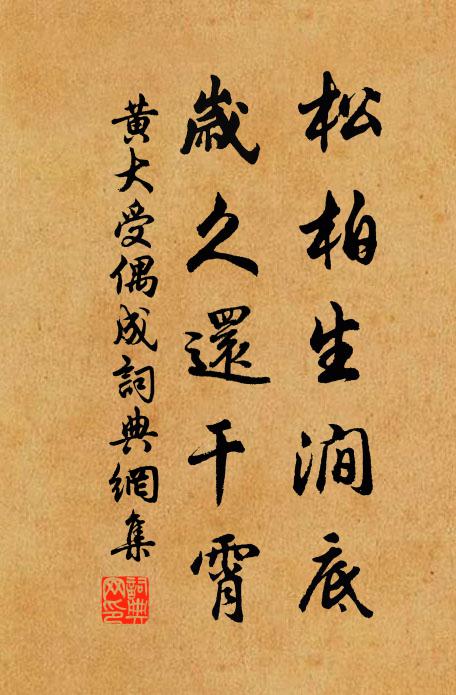 松柏生澗底
歲久還干霄
黃大受偶成詞典網集
詞典网印